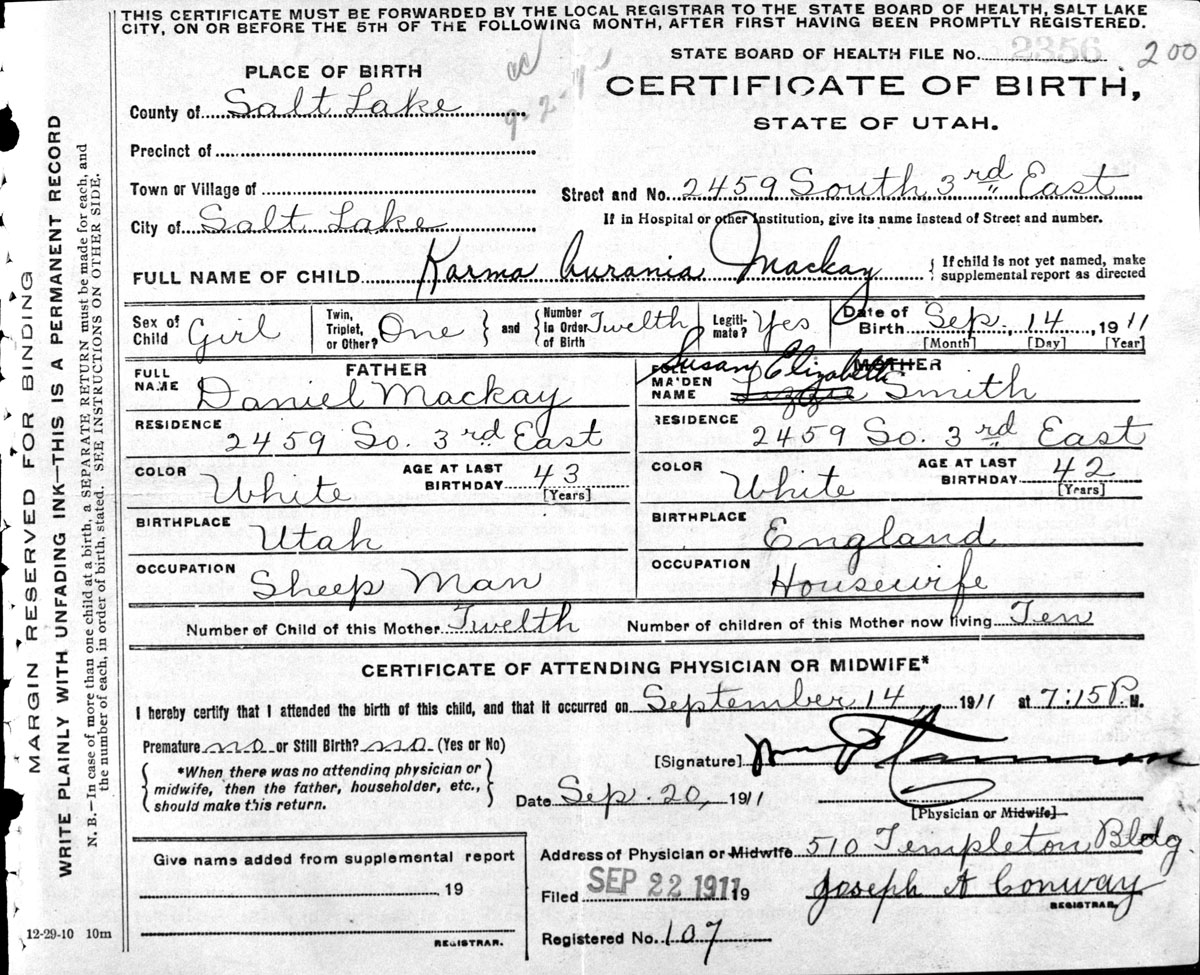 THIS CERTIFICATE MUST BE FORWARDED BY THE LOCAL REGISTRAR TO THE STATE BOARD OF HEALTH, SALT LAKE
CITY, ON OR BEFORE THE 5TH OF THE FOLLOWING MONTH, AFTER FIRST HAVING BEEN PROMPTLY REGISTERED.
STATE BOARD OF HEALTH FILE No. 2356 200
PLACE OF BIRTH
CERTIFICATE OF BIRTH,
STATE OF UTAH.
County of Salt Lake
Precinct of
Town or Village of
Street and No. 2459 South 3rd East
City of Salt Lake
If in Hospital or other Institution, give its name instead of Street and number.
FULL NAME OF CHILD Karma Aurania Mackay { If child is not yet named, make
supplemental report as directed
Sex of Child Girl Twin, Triplet, or Other? One } and { Number in Order of Birth Twelth Legitimate? Yes Date of Birth Sep. 14, 1911
[Month] [Day] [Year]
FATHER MOTHER
FULL NAME Daniel Mackay
MAIDEN NAME Susan Elizabeth Lizzie Smith
RESIDENCE 2459 So. 3rd East
RESIDENCE 2459 So. 3rd East
COLOR White AGE AT LAST BIRTHDAY 43 [Years]
COLOR White AGE AT LAST BIRTHDAY 42 [Years]
BIRTHPLACE Utah
BIRTHPLACE England
OCCUPATION Sheep Man
OCCUPATION Housewife
Number of Child of this Mother Twelth Number of children of this Mother now living Ten
CERTIFICATE OF ATTENDING PHYSICIAN OR MIDWIFE*
I hereby certify that I attended the birth of this child, and that it occurred on September 14, 1911 at 7:15 P. M.
Premature no or Still Birth? no (Yes or No)
*When there was no attending physician or
midwife, then the father, householder, etc.,
should make this return.
[Signature]
Date Sep. 20, 1911
[Physician or Midwife]
Give name added from supplemental report
19
REGISTRAR.
Address of Physician or Midwife 510 Templeton Bldg.
Filed SEP 22 1911 19 Joseph A Conway
REGISTRAR.
Registered No. 107
12-29-10 10m
MARGIN RESERVED FOR BINDING
WRITE PLAINLY WITH UNFADING INK—THIS IS A PERMANENT RECORD
N. B.—In case of more than one child at a birth, a SEPARATE RETURN must be made for each, and
the number of each, in order of birth, stated. SEE INSTRUCTIONS ON OTHER SIDE.